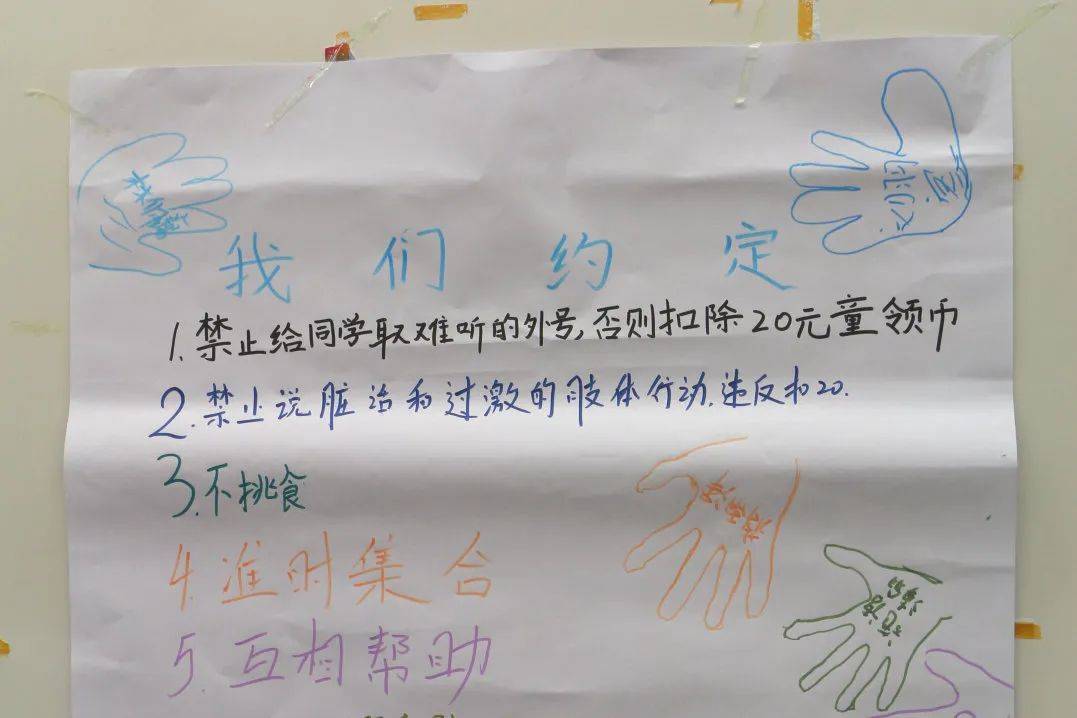 我们约定
1.禁止给同学取难听的外号,否则扣除20元童领币
2.禁止说脏话和过激的肢体行动.违反扣20.
3.不挑食
4.准时集合
5.互相帮助